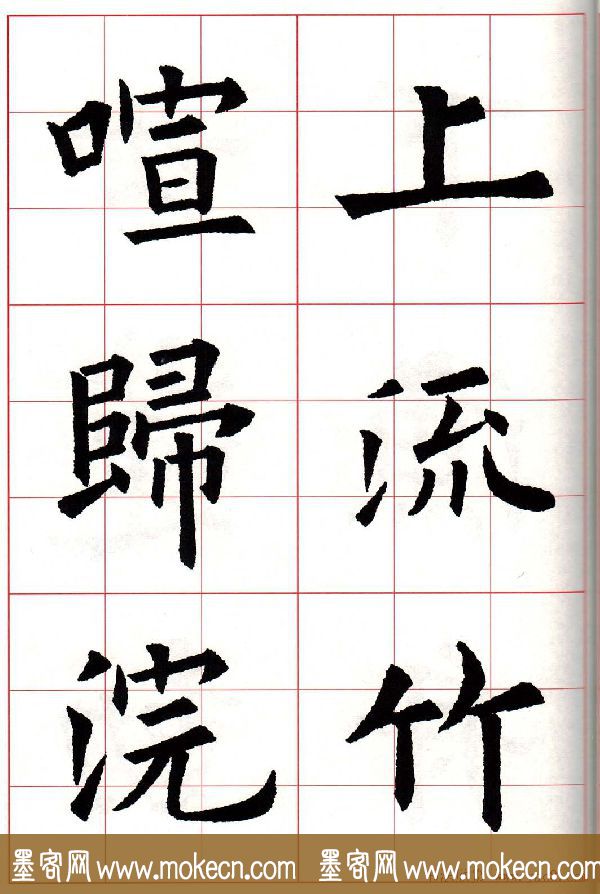 上流竹
喧歸浣
墨客网 www.mokecn.com 墨客网 www.mokecn.com